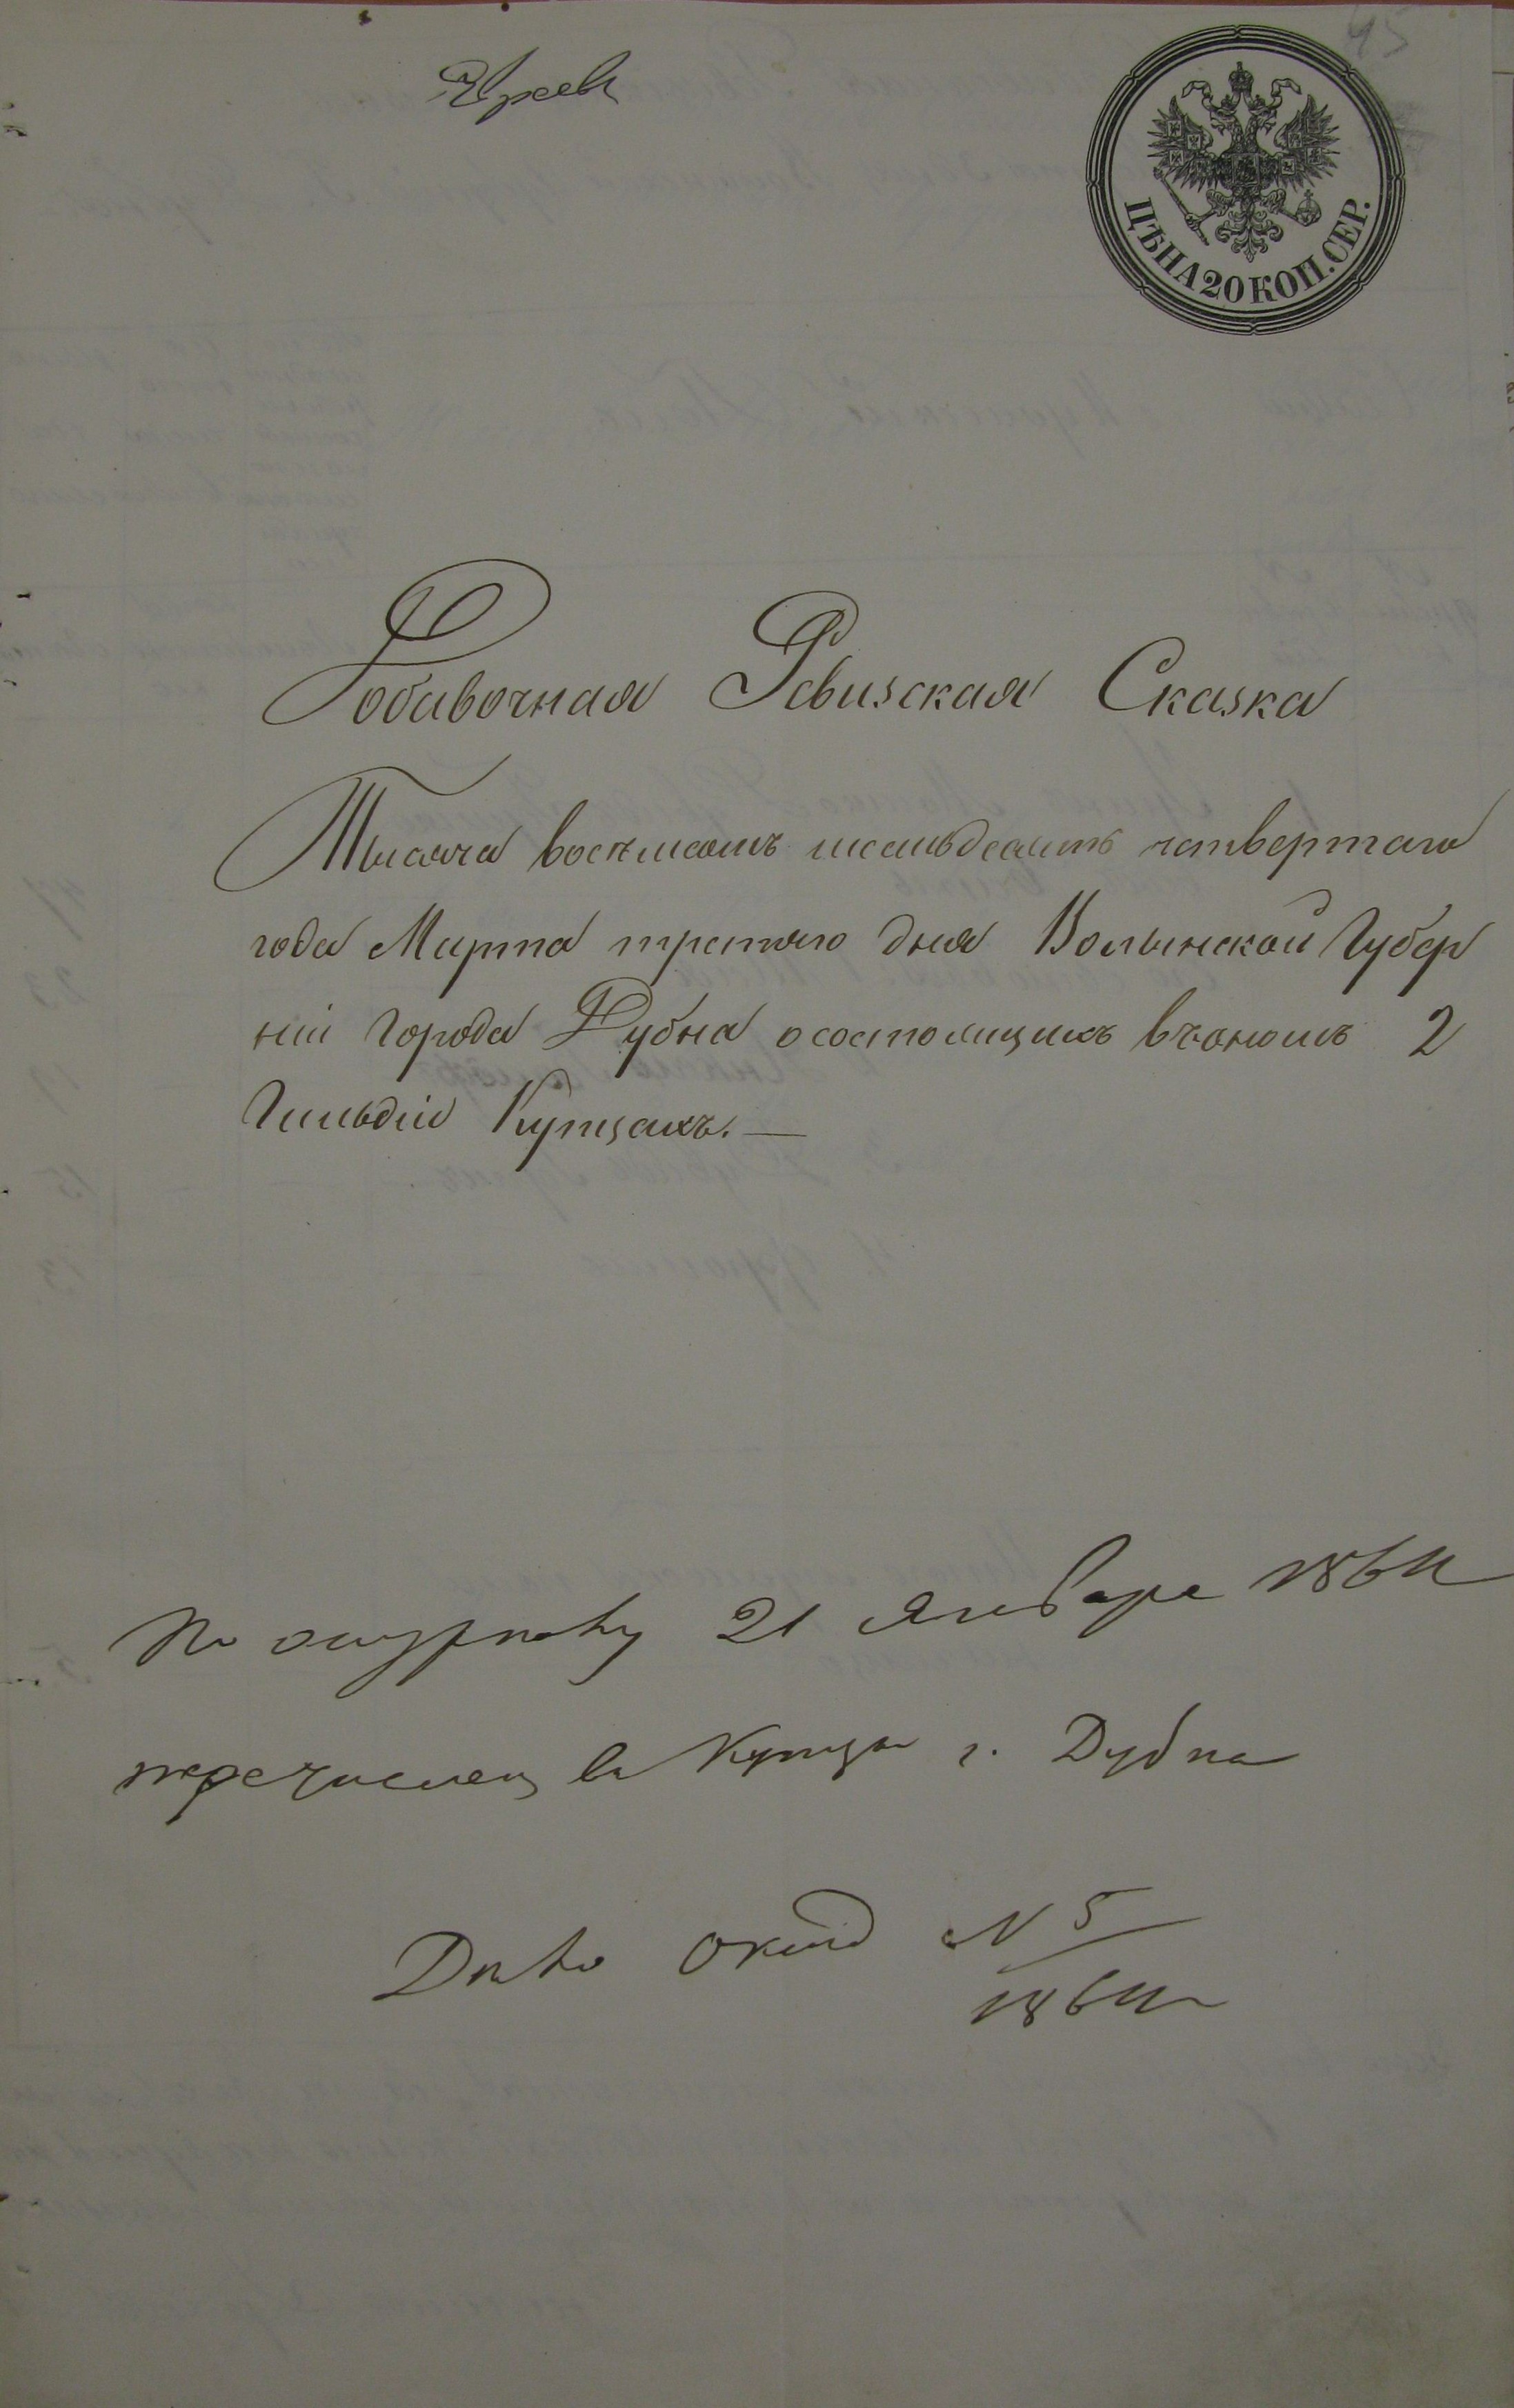 45
Евреи
ЦѢНА 20 КОП. СЕР.
Добавочная Ревизская Сказка
Тысяча восемсотъ шестьдесятъ четвертаго
года Марта третяго дня Волынской Губер
ніи Города Дубна осостоящихъ въономъ 2
Гильдіи Купцахъ. —
По 21 Января 1864
перечислен в Купцы г. Дубна
Дѣло N 5
1864